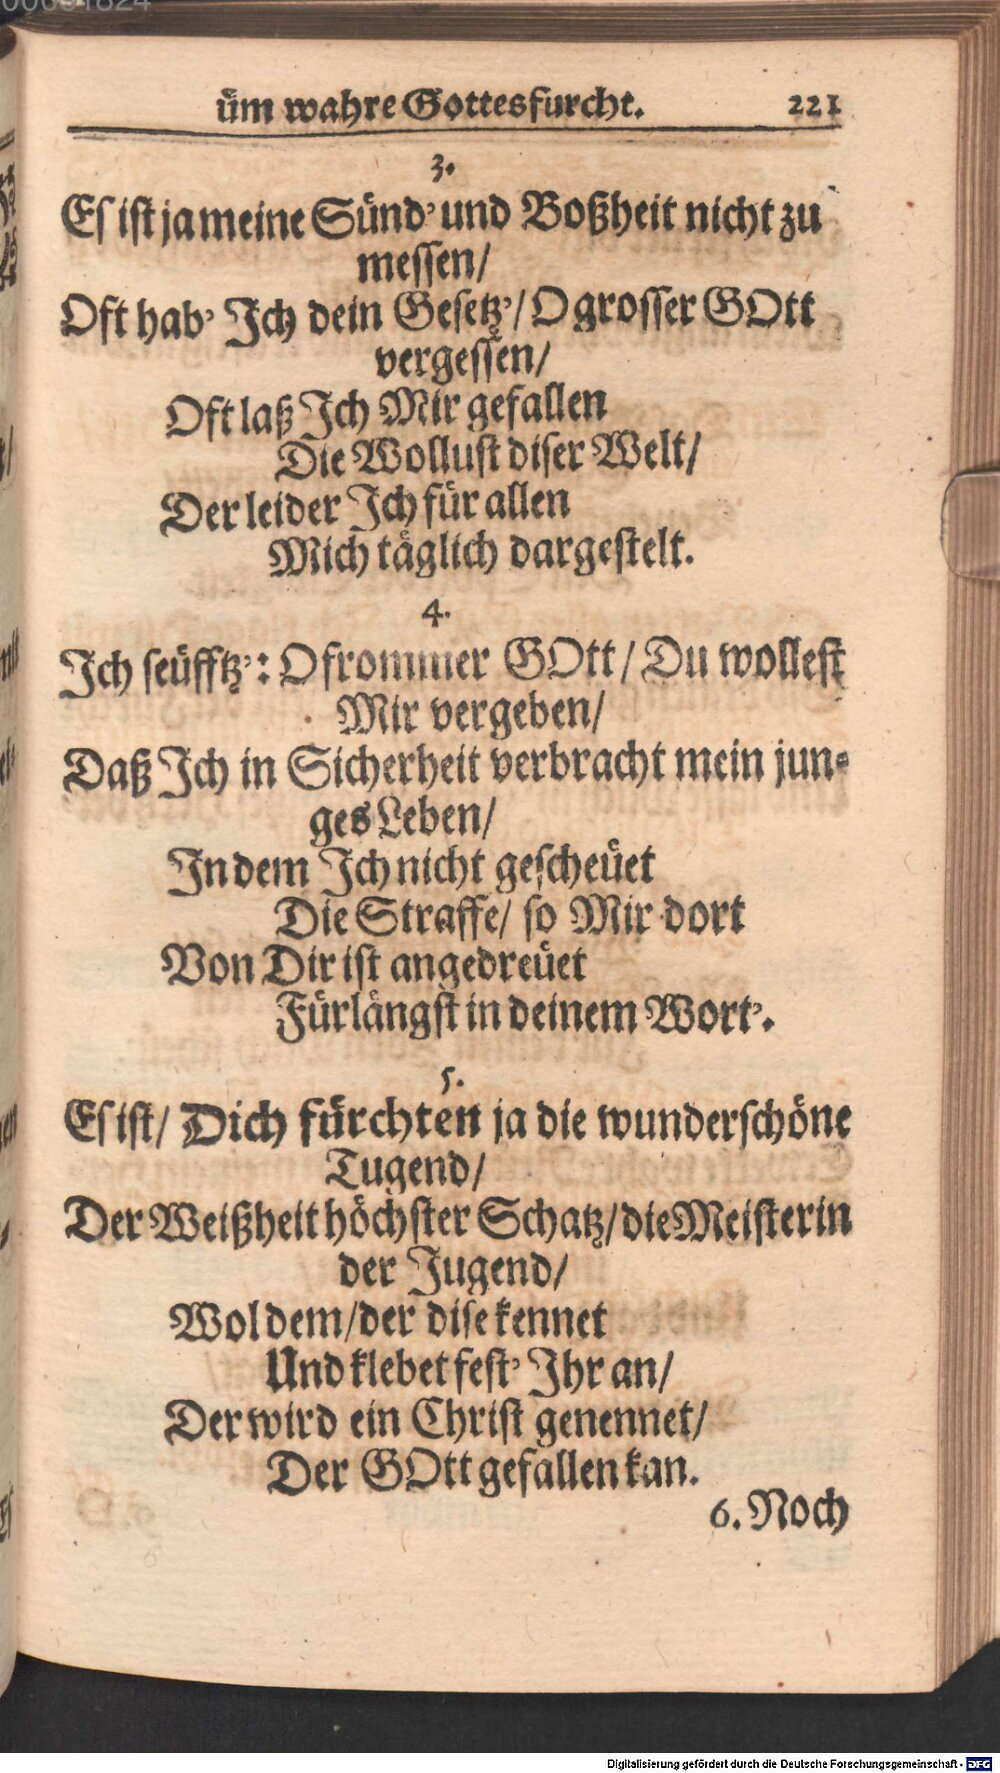 üm wahre Gottesfurcht. 221
3.
Es ist ja meine Sünd' und Boßheit nicht zu
messen/
Oft hab' Ich dein Gesetz'/ O grosser GOtt
vergessen/
Oft laß Ich Mir gefallen
Die Wollust diser Welt/
Der leider Ich für allen
Mich täglich dargestelt.
4.
Ich seüfftz': O frommer GOtt/ Du wollest
Mir vergeben/
Daß Ich in Sicherheit verbracht mein jun-
ges Leben/
In dem Ich nicht gescheüet
Die Straffe/ so Mir dort
Von Dir ist angedreüet
Fürlängst in deinem Wort'.
5.
Es ist/ Dich fürchten ja die wunderschöne
Tugend/
Der Weißheit höchster Schatz/ die Meisterin
der Jugend/
Wol dem/ der dise kennet
Und klebet fest' Ihr an/
Der wird ein Christ genennet/
Der GOtt gefallen kan.
6. Noch
Digitalisierung gefördert durch die Deutsche Forschungsgemeinschaft - DFG